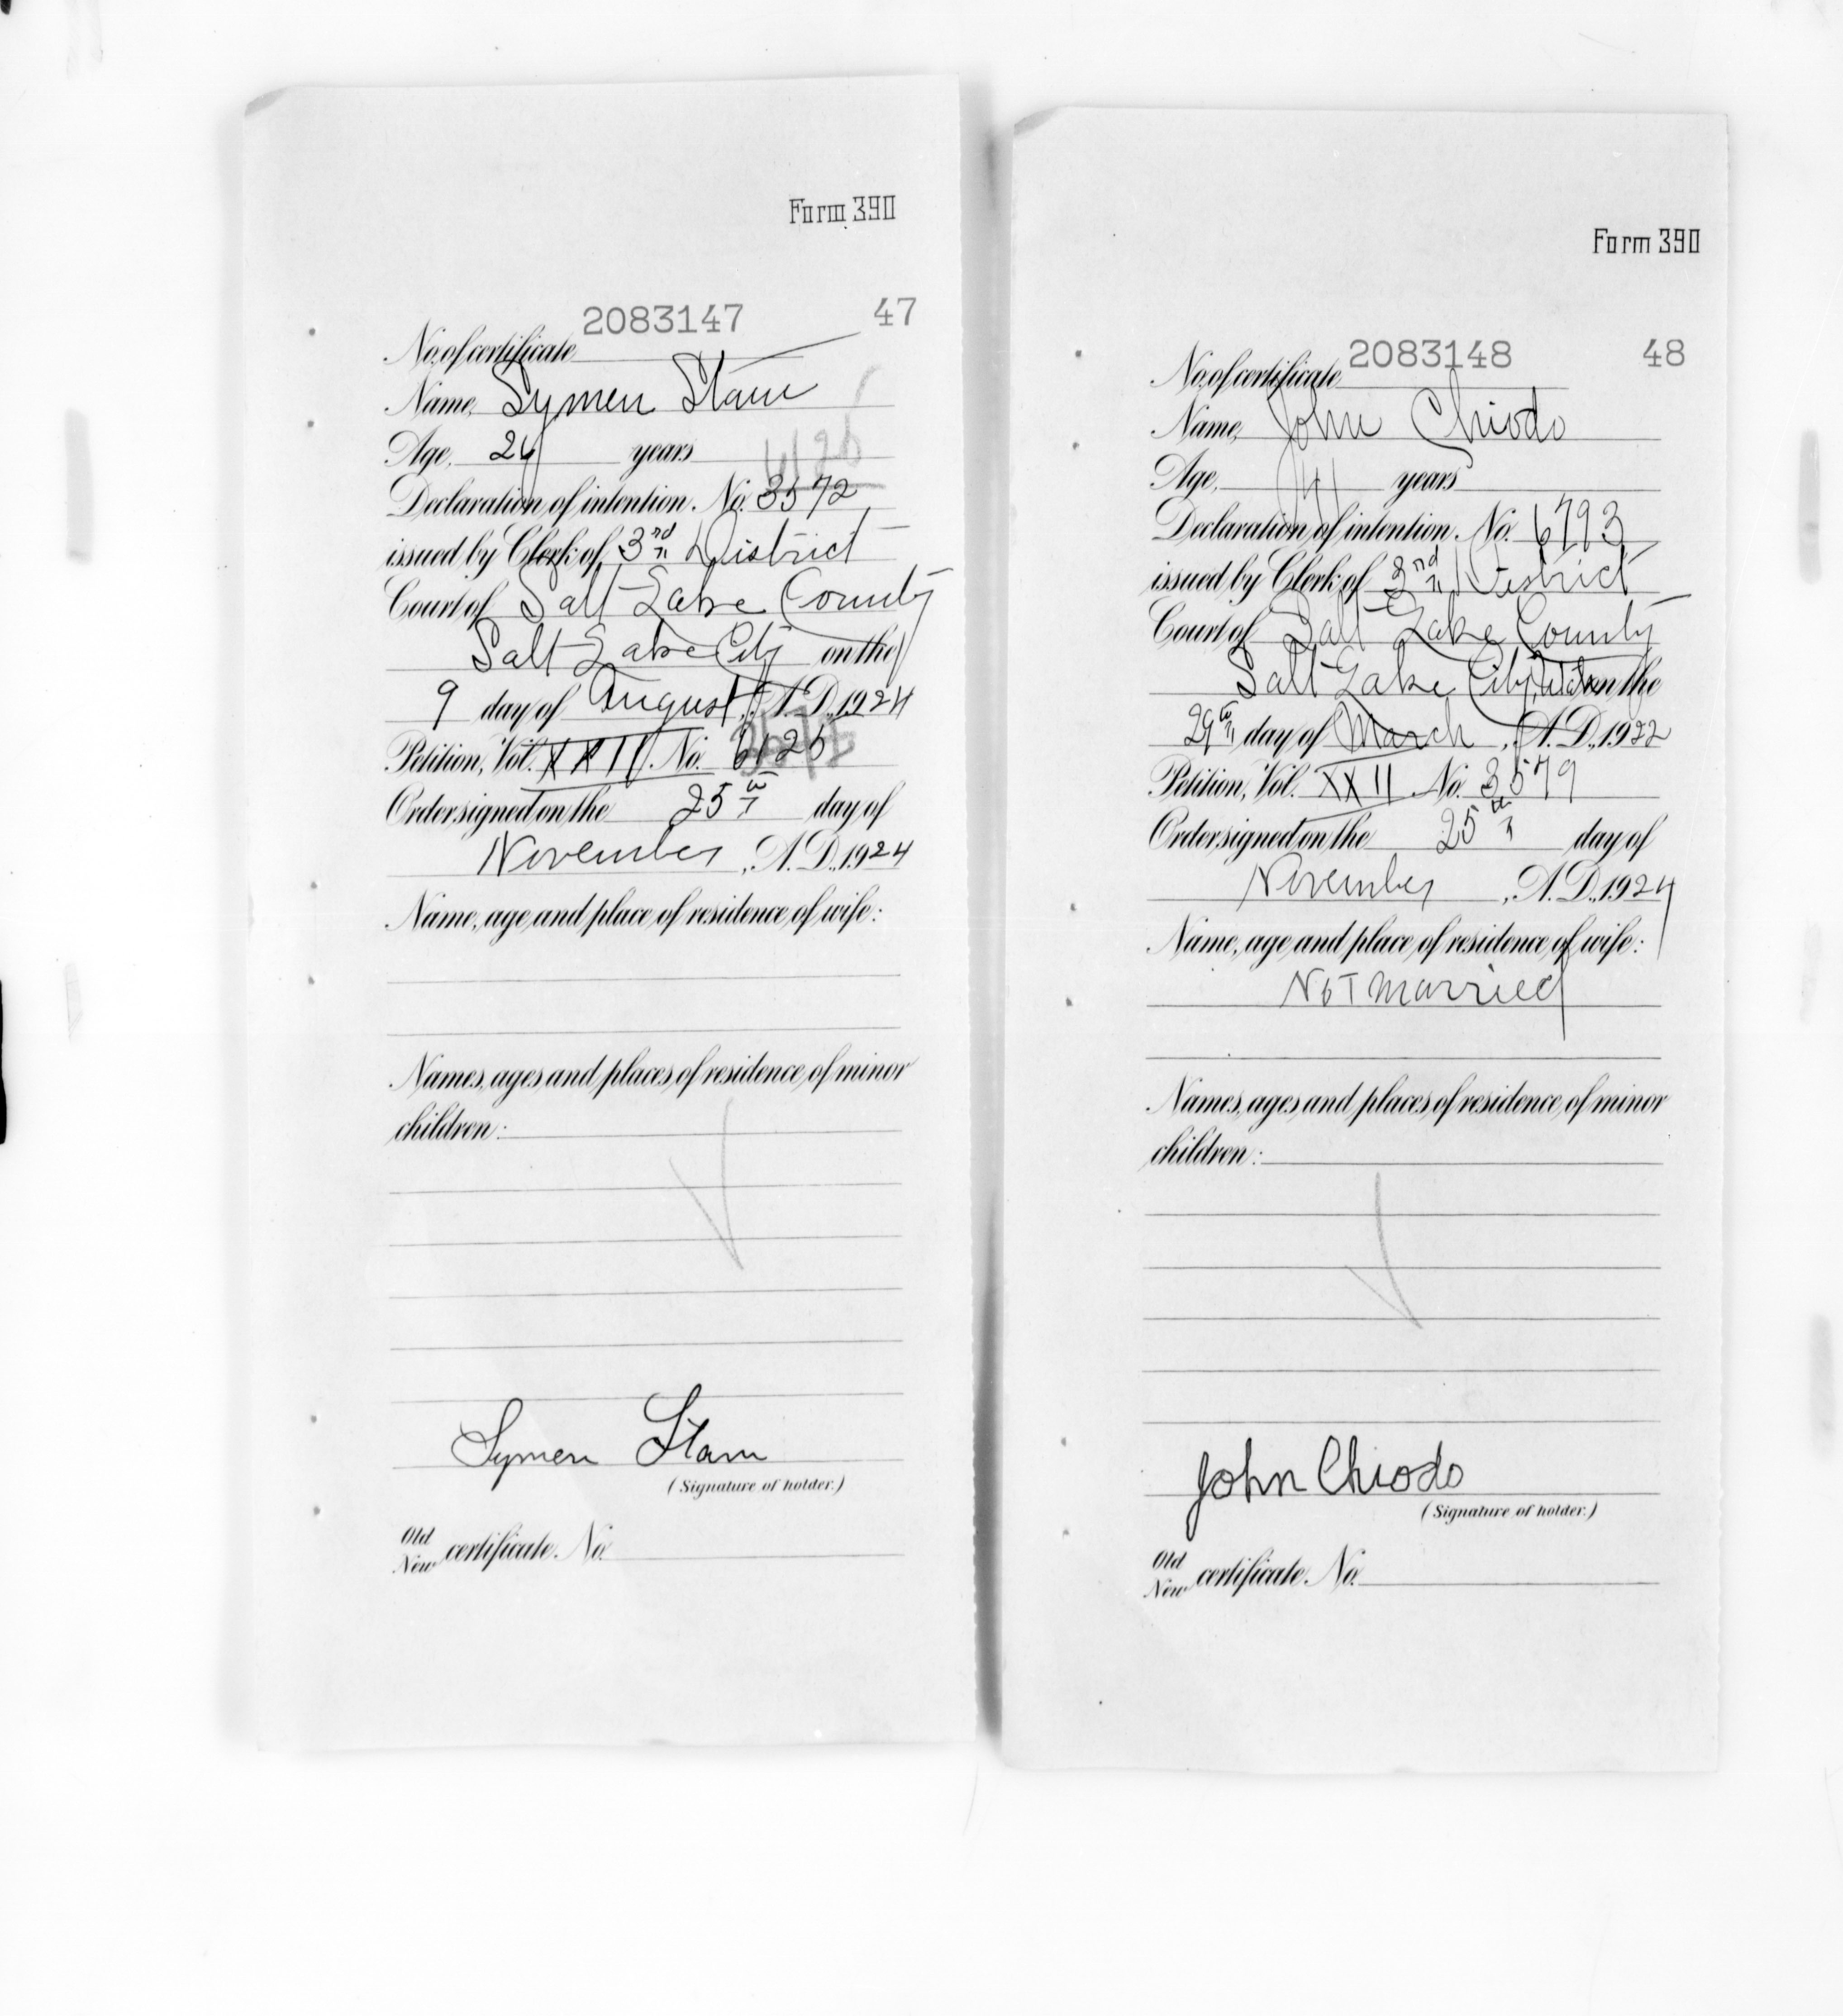 Form 390
2083147 47
No. of certificate
Name, Symen Stam
Age, 24 years
6126
Declaration of intention, No. 3572
issued by Clerk of 3rd District
Court of Salt Lake County
Salt Lake City on the
9 day of August, A.D., 1924
Petition, Vol. XXII No. 6126
Order signed on the 25th day of
November, A.D., 1924
Name, age and place of residence of wife:
Names, ages and places of residence of minor
children:
Symen Stam
(Signature of holder.)
Old
New certificate No.
Form 390
2083148 48
No. of certificate
Name, John Chiodo
Age, years
Declaration of intention, No. 6793
issued by Clerk of 3rd District
Court of Salt Lake County
Salt Lake City, Utah on the
29th day of March, A.D., 1922
Petition, Vol. XXII No. 3579
Order signed on the 25th day of
November, A.D., 1924
Name, age and place of residence of wife:
Not Married
Names, ages and places of residence of minor
children:
John Chiodo
(Signature of holder.)
Old
New certificate No.